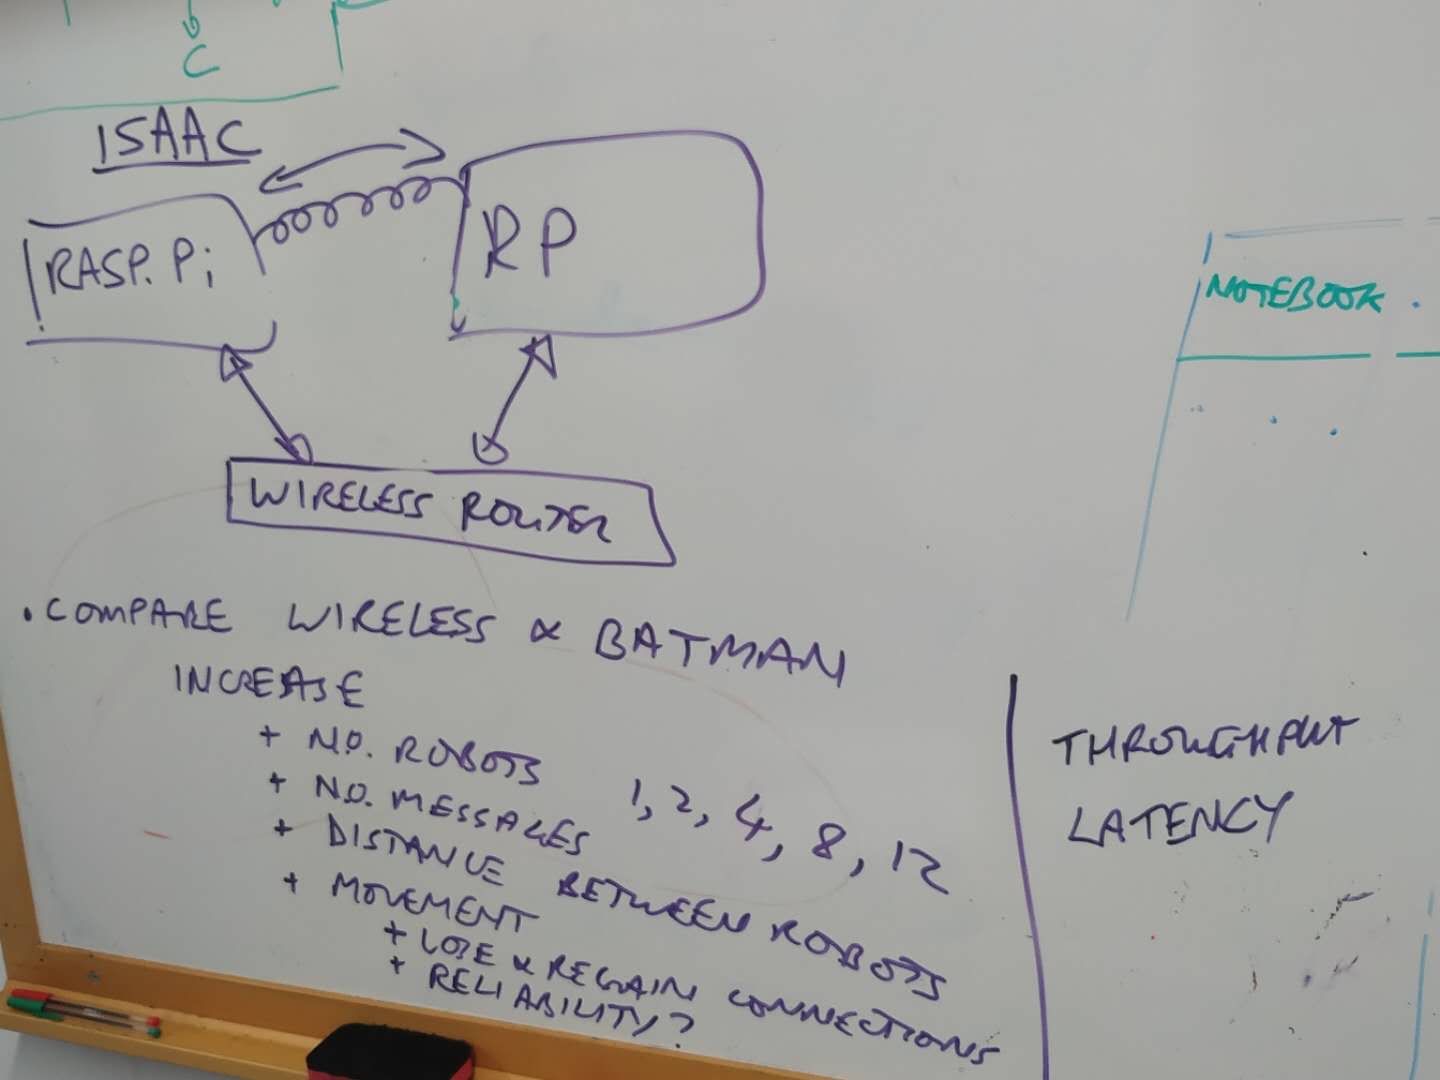 C
ISAAC
RASP. Pi
RP
WIRELESS ROUTER
NOTEBOOK
. COMPARE WIRELESS & BATMAN
INCREASE
+ NO. ROBOTS 1, 2, 4, 8, 12
+ NO. MESSAGES
+ DISTANCE BETWEEN ROBOTS
+ MOVEMENT
+ LOSE & REGAIN CONNECTIONS
+ RELIABILITY?
THROUGHPUT
LATENCY